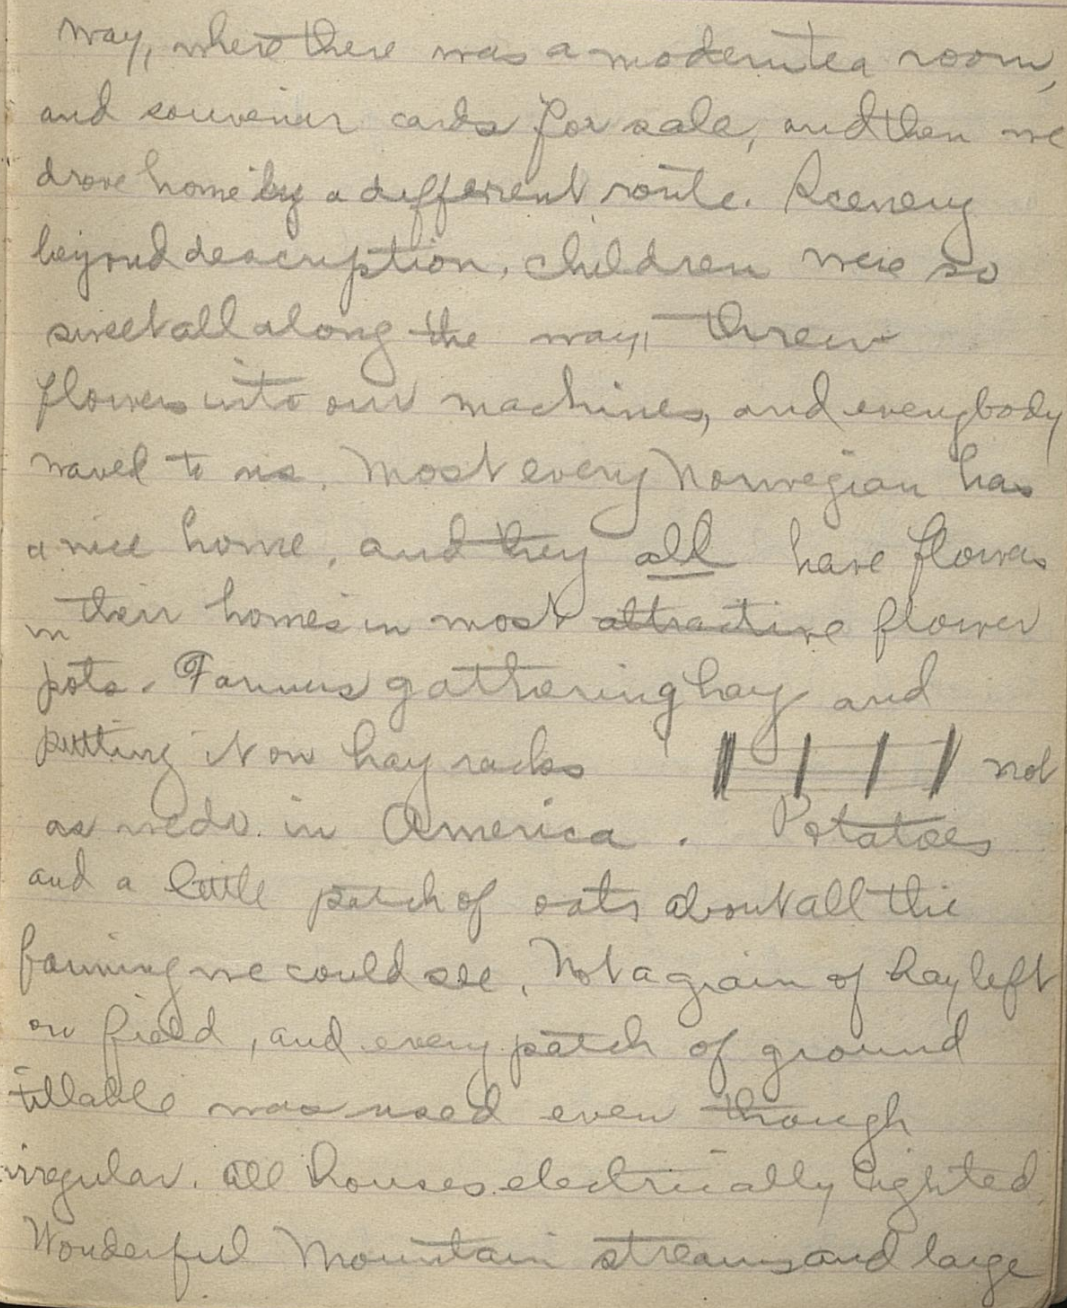 way, where there was a modern tea room,
and souvenir cards for sale, and then we
drove home by a different route. Scenery
beyond description, children were so
sweet all along the way, threw
flowers into our machines, and everybody
waved to us. Most every Norwegian has
a nice home, and they all have flowers
in their homes in most attractive flower
pots. Farmers gathering hay and
putting it on hay racks not
as we do in America. Potatoes
and a little patch of oats about all the
farming we could see. Not a grain of hay left
on field, and every patch of ground
tillable was used even though
irregular. All houses electrically lighted.
Wonderful Mountain streams and large